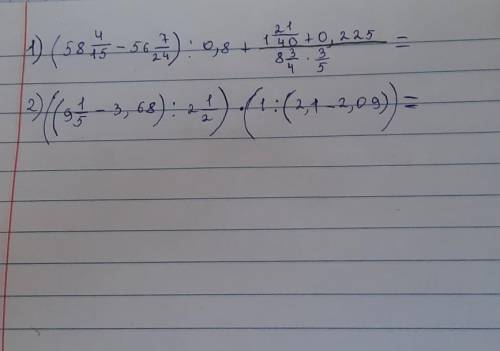 1) (58 4/15 - 56 7/24) : 0,8 + (1 21/40 + 0,225)/(8 3/4 · 3/5) =
2) ((9 1/5 - 3,68) : 2 1/2) · (1 : (2,1 - 2,09)) =